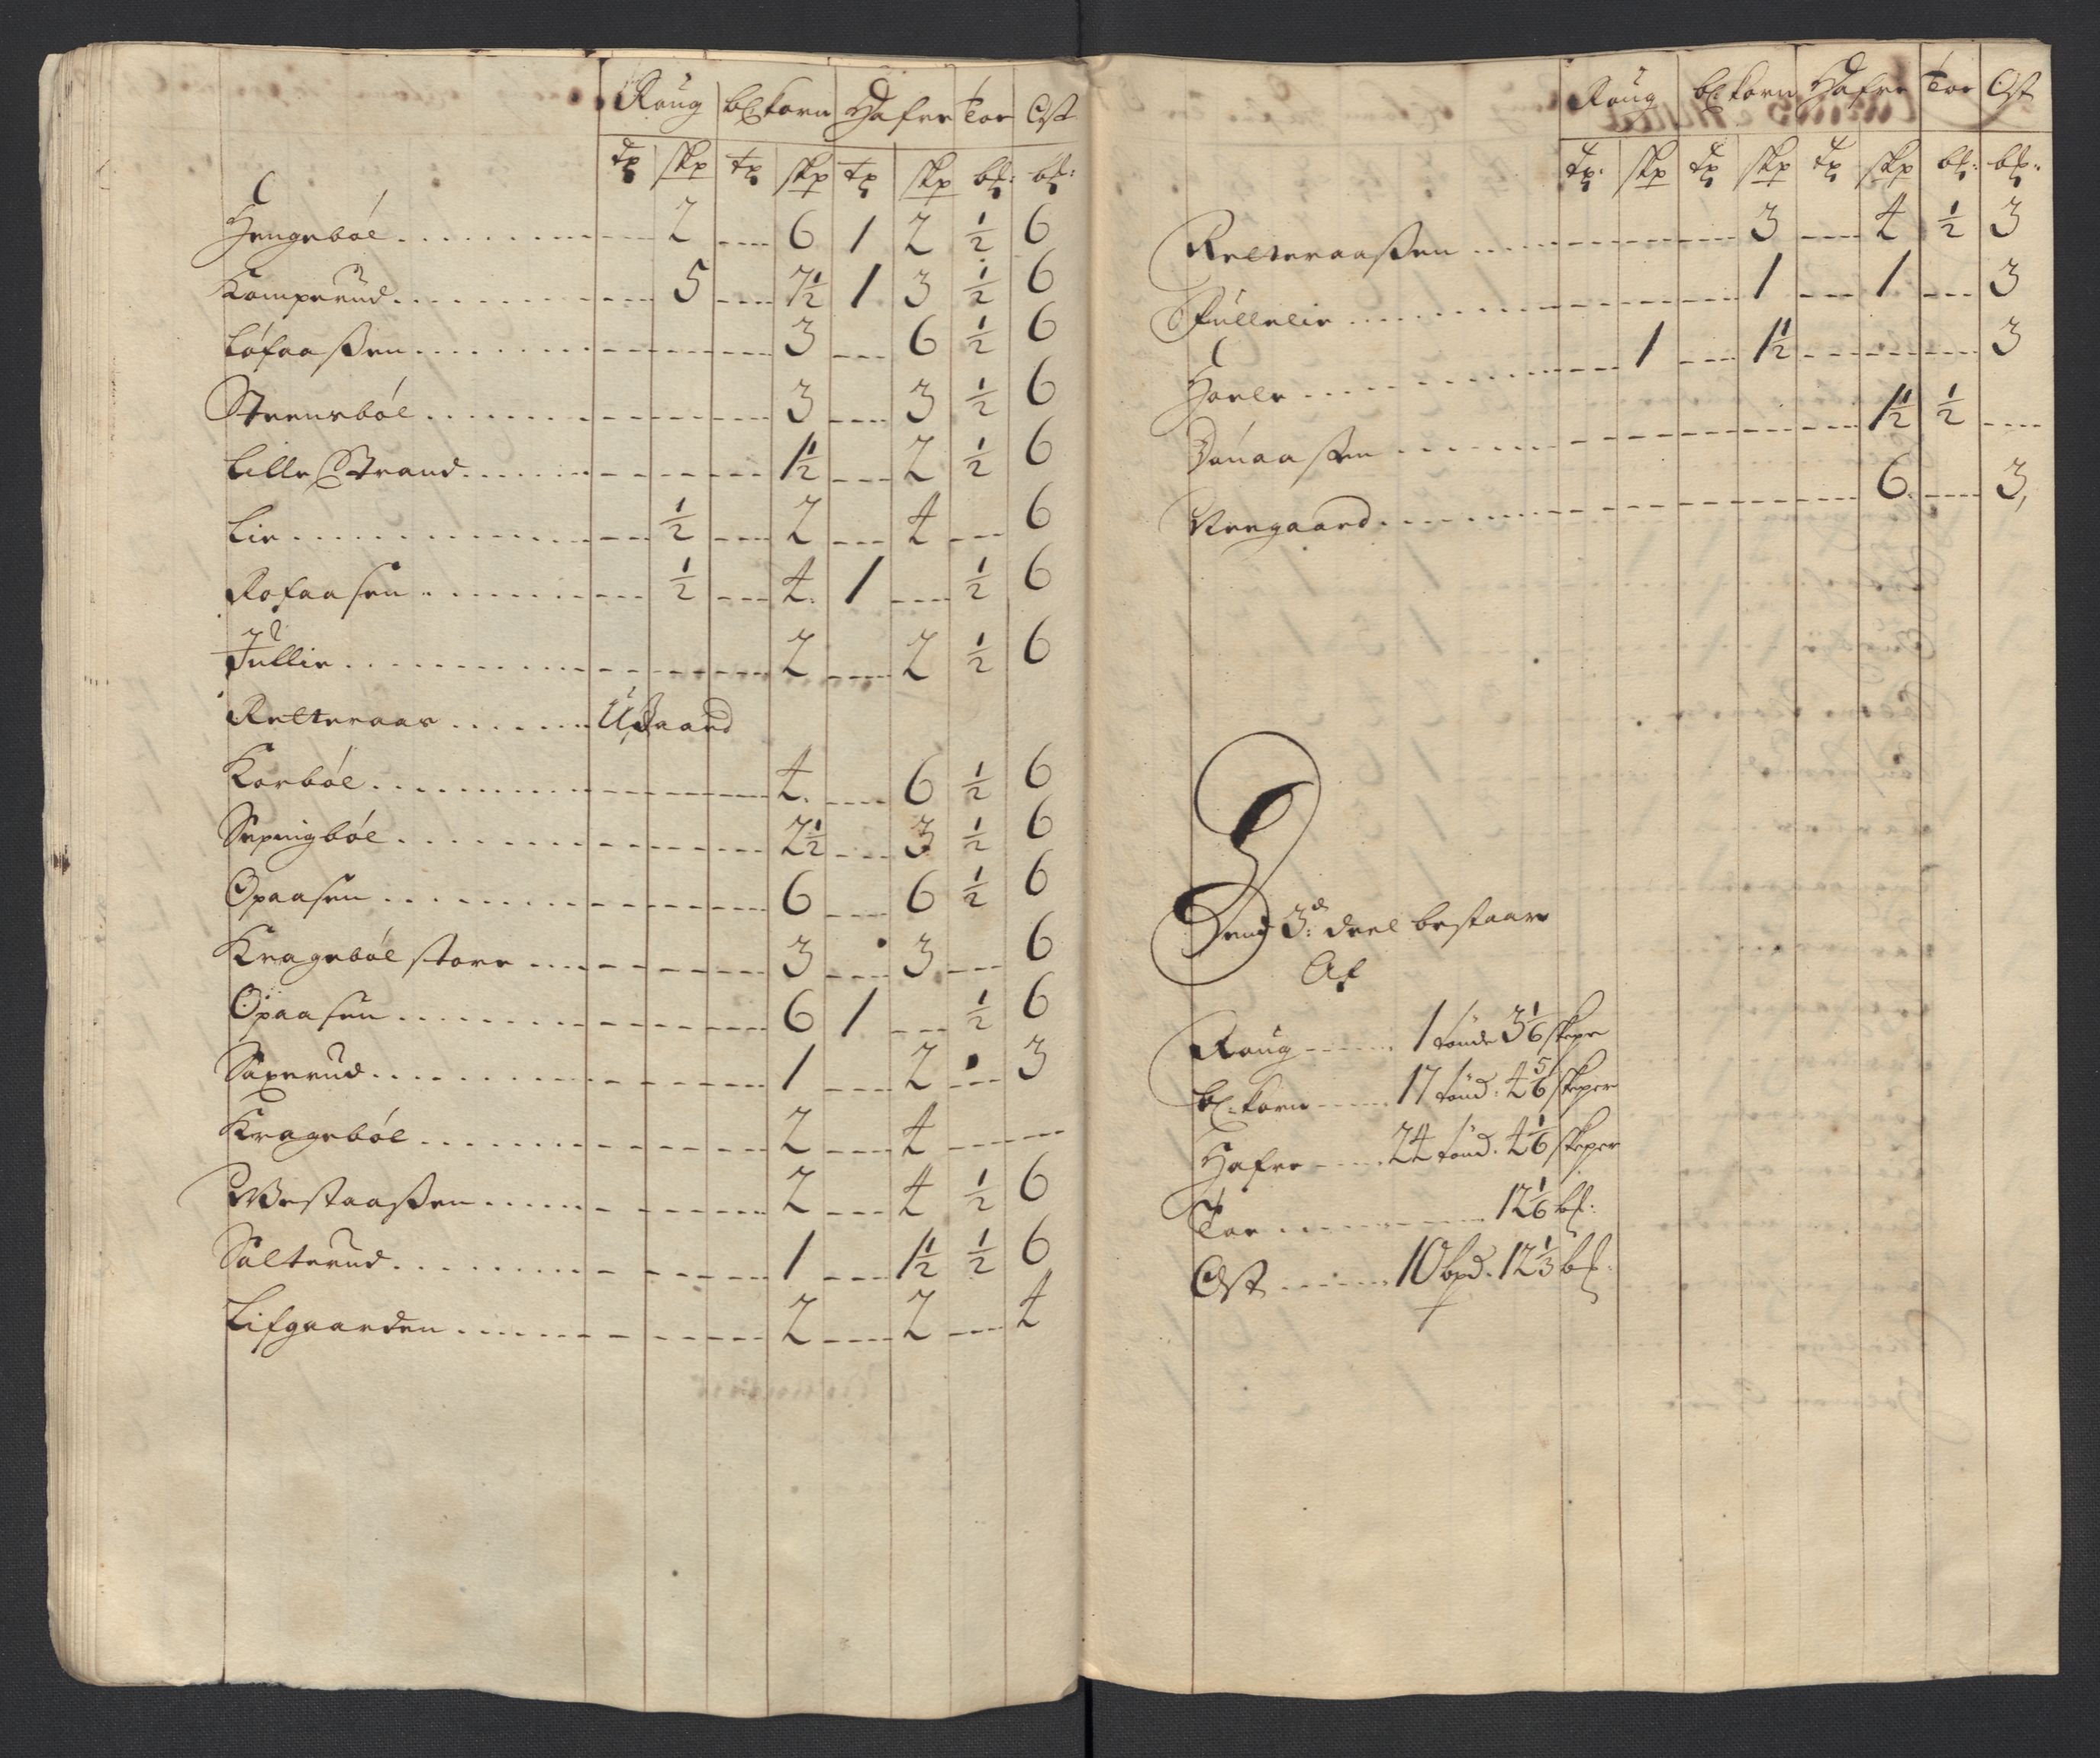 Roug blkorn Hafre Tør Ost
tr skp tr skp tr skp bl: bl:
Hengebøl 2 6 1 2 ½ 6
Komperud 5 7½ 1 3 ½ 6
Løfaassen 3 6 ½ 6
Steensbøl 3 3 ½ 6
Lille Strand 1½ 2 ½ 6
Lie ½ 2 4 6
Rofaasen ½ 4 1 ½ 6
Tullie 2 2 ½ 6
Relteraas
Korbøl 4 6 ½ 6
Sepingbøl 2½ 3 ½ 6
Opaasen 6 6 ½ 6
Kragebøl store 3 3 6
Opaasen 6 1 ½ 6
Saxerud 1 2 3
Kragebøl 2 4
Westaassen 2 4 ½ 6
Salterud 1 1½ ½ 6
Lifgaarden 2 2 4
Roug bl korn Hafre Tør Ost
tr skp tr skp tr skp bl: bl:
Relteraassen 3 4 ½ 3
Skullelie 1 1 3
Haele 1 1½ 3
Dønaassen 1½ ½
Neegaard 6 3
Dend 3d: deel bestaar
Af
Roug 1 tønde 3 1/6 skepe
bl: korn 17 tønd: 4 5/6 skeper
Hafre 24 tønd: 4 1/6 skeper
Tør 12 1/6 bl:
Ost 10 bpd. 12 1/3 bl: